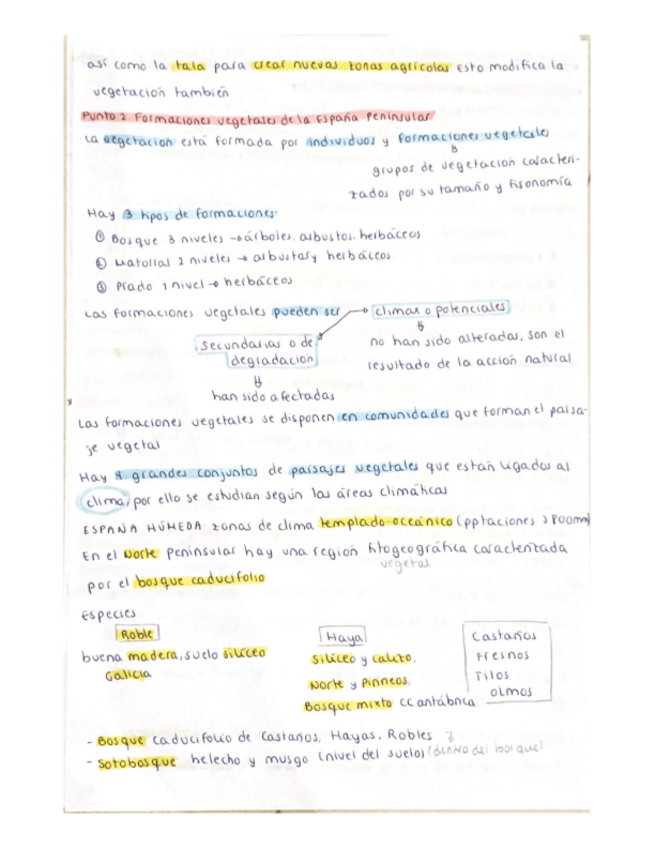 así como la tala para crear nuevas zonas agrícolas Esto modifica la
vegetación también
Punto 2 Formaciones vegetales de la España Peninsular
La vegetación está formada por individuos y formaciones vegetales
grupos de vegetación caracteri-
zados por su tamaño y fisonomía
Hay 3 tipos de formaciones:
① Bosque 3 niveles → árboles, arbustos, herbáceos
② Matorral 2 niveles → arbustos y herbáceos
③ Prado 1 nivel → herbáceos
Las formaciones vegetales pueden ser → climax o potenciales
secundarias o de
degradación
no han sido alteradas, son el
resultado de la acción natural
han sido afectadas
Las formaciones vegetales se disponen en comunidades que forman el paisa-
je vegetal
Hay 4 grandes conjuntos de paisajes vegetales que están ligados al
clima, por ello se estudian según las áreas climáticas
ESPAÑA HÚMEDA: zonas de clima templado-oceánico (pptaciones >800mm)
En el Norte peninsular hay una región fitogeográfica caracterizada
vegetal
por el bosque caducifolio
Especies
Roble
buena madera, suelo silíceo
Galicia
Haya
Silíceo y calizo.
Norte y Pirineos.
Bosque mixto CC antábrica
Castaños
Fresnos
Tilos
Olmos
- Bosque caducifolio de Castaños, Hayas, Robles
- Sotobosque helecho y musgo (nivel del suelo) (dentro del bosque)